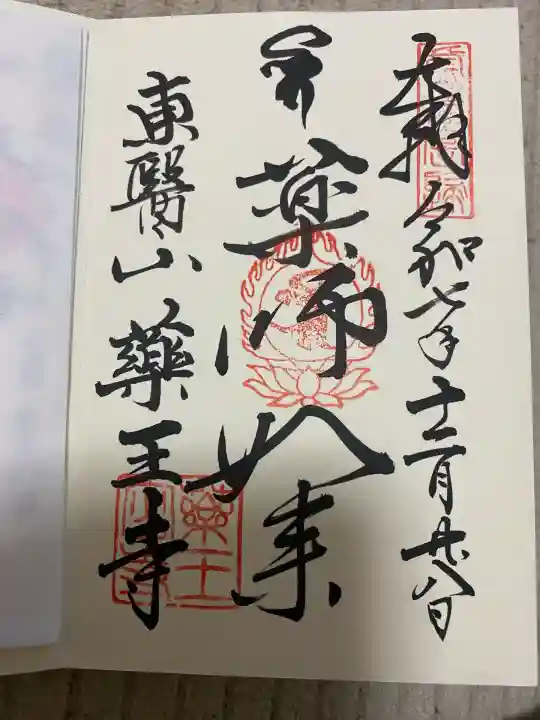 奉拝 令和七年十二月廿八日
薬師如来
東醫山 藥王寺
藥王寺